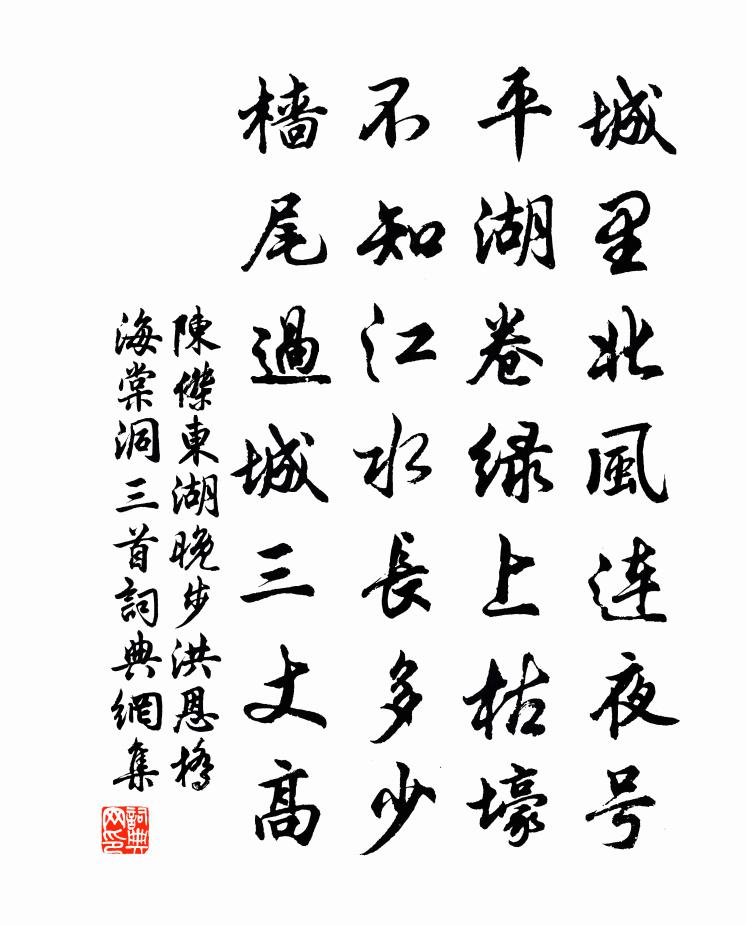 城里北風连夜号
平湖卷绿上枯壕
不知江水長多少
檣尾過城三丈高
陳傑東湖晚步洪恩橋
海棠洞三首詞典網集
詞典网印